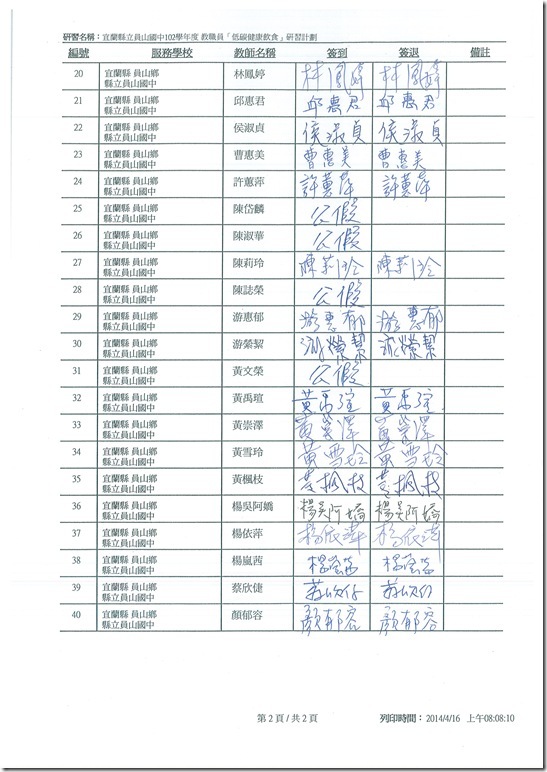 研習名稱：宜蘭縣立員山國中102學年度 教職員「低碳健康飲食」研習計劃
編號 服務學校 教師名稱 簽到 簽退 備註
20 宜蘭縣 員山鄉 縣立員山國中 林鳳婷 林鳳婷 林鳳婷
21 宜蘭縣 員山鄉 縣立員山國中 邱惠君 邱惠君 邱惠君
22 宜蘭縣 員山鄉 縣立員山國中 侯淑貞 侯淑貞 侯淑貞
23 宜蘭縣 員山鄉 縣立員山國中 曹惠美 曹惠美 曹惠美
24 宜蘭縣 員山鄉 縣立員山國中 許蕙萍 許蕙萍 許蕙萍
25 宜蘭縣 員山鄉 縣立員山國中 陳岱麟 公假
26 宜蘭縣 員山鄉 縣立員山國中 陳淑華 公假
27 宜蘭縣 員山鄉 縣立員山國中 陳莉玲 陳莉玲 陳莉玲
28 宜蘭縣 員山鄉 縣立員山國中 陳誌榮 公假
29 宜蘭縣 員山鄉 縣立員山國中 游惠郁 游惠郁 游惠郁
30 宜蘭縣 員山鄉 縣立員山國中 游縈絜 游縈絜 游縈絜
31 宜蘭縣 員山鄉 縣立員山國中 黃文榮 公假
32 宜蘭縣 員山鄉 縣立員山國中 黃禹瑄 黃禹瑄 黃禹瑄
33 宜蘭縣 員山鄉 縣立員山國中 黃崇澤 黃崇澤 黃崇澤
34 宜蘭縣 員山鄉 縣立員山國中 黃雪玲 黃雪玲 黃雪玲
35 宜蘭縣 員山鄉 縣立員山國中 黃楓枝 黃楓枝 黃楓枝
36 宜蘭縣 員山鄉 縣立員山國中 楊吳阿嬌 楊吳阿嬌 楊吳阿嬌
37 宜蘭縣 員山鄉 縣立員山國中 楊依萍 楊依萍 楊依萍
38 宜蘭縣 員山鄉 縣立員山國中 楊嵐茜 楊嵐茜 楊嵐茜
39 宜蘭縣 員山鄉 縣立員山國中 蔡欣倢
40 宜蘭縣 員山鄉 縣立員山國中 顏郁容 顏郁容 顏郁容
第 2 頁 / 共 2 頁 列印時間： 2014/4/16 上午08:08:10